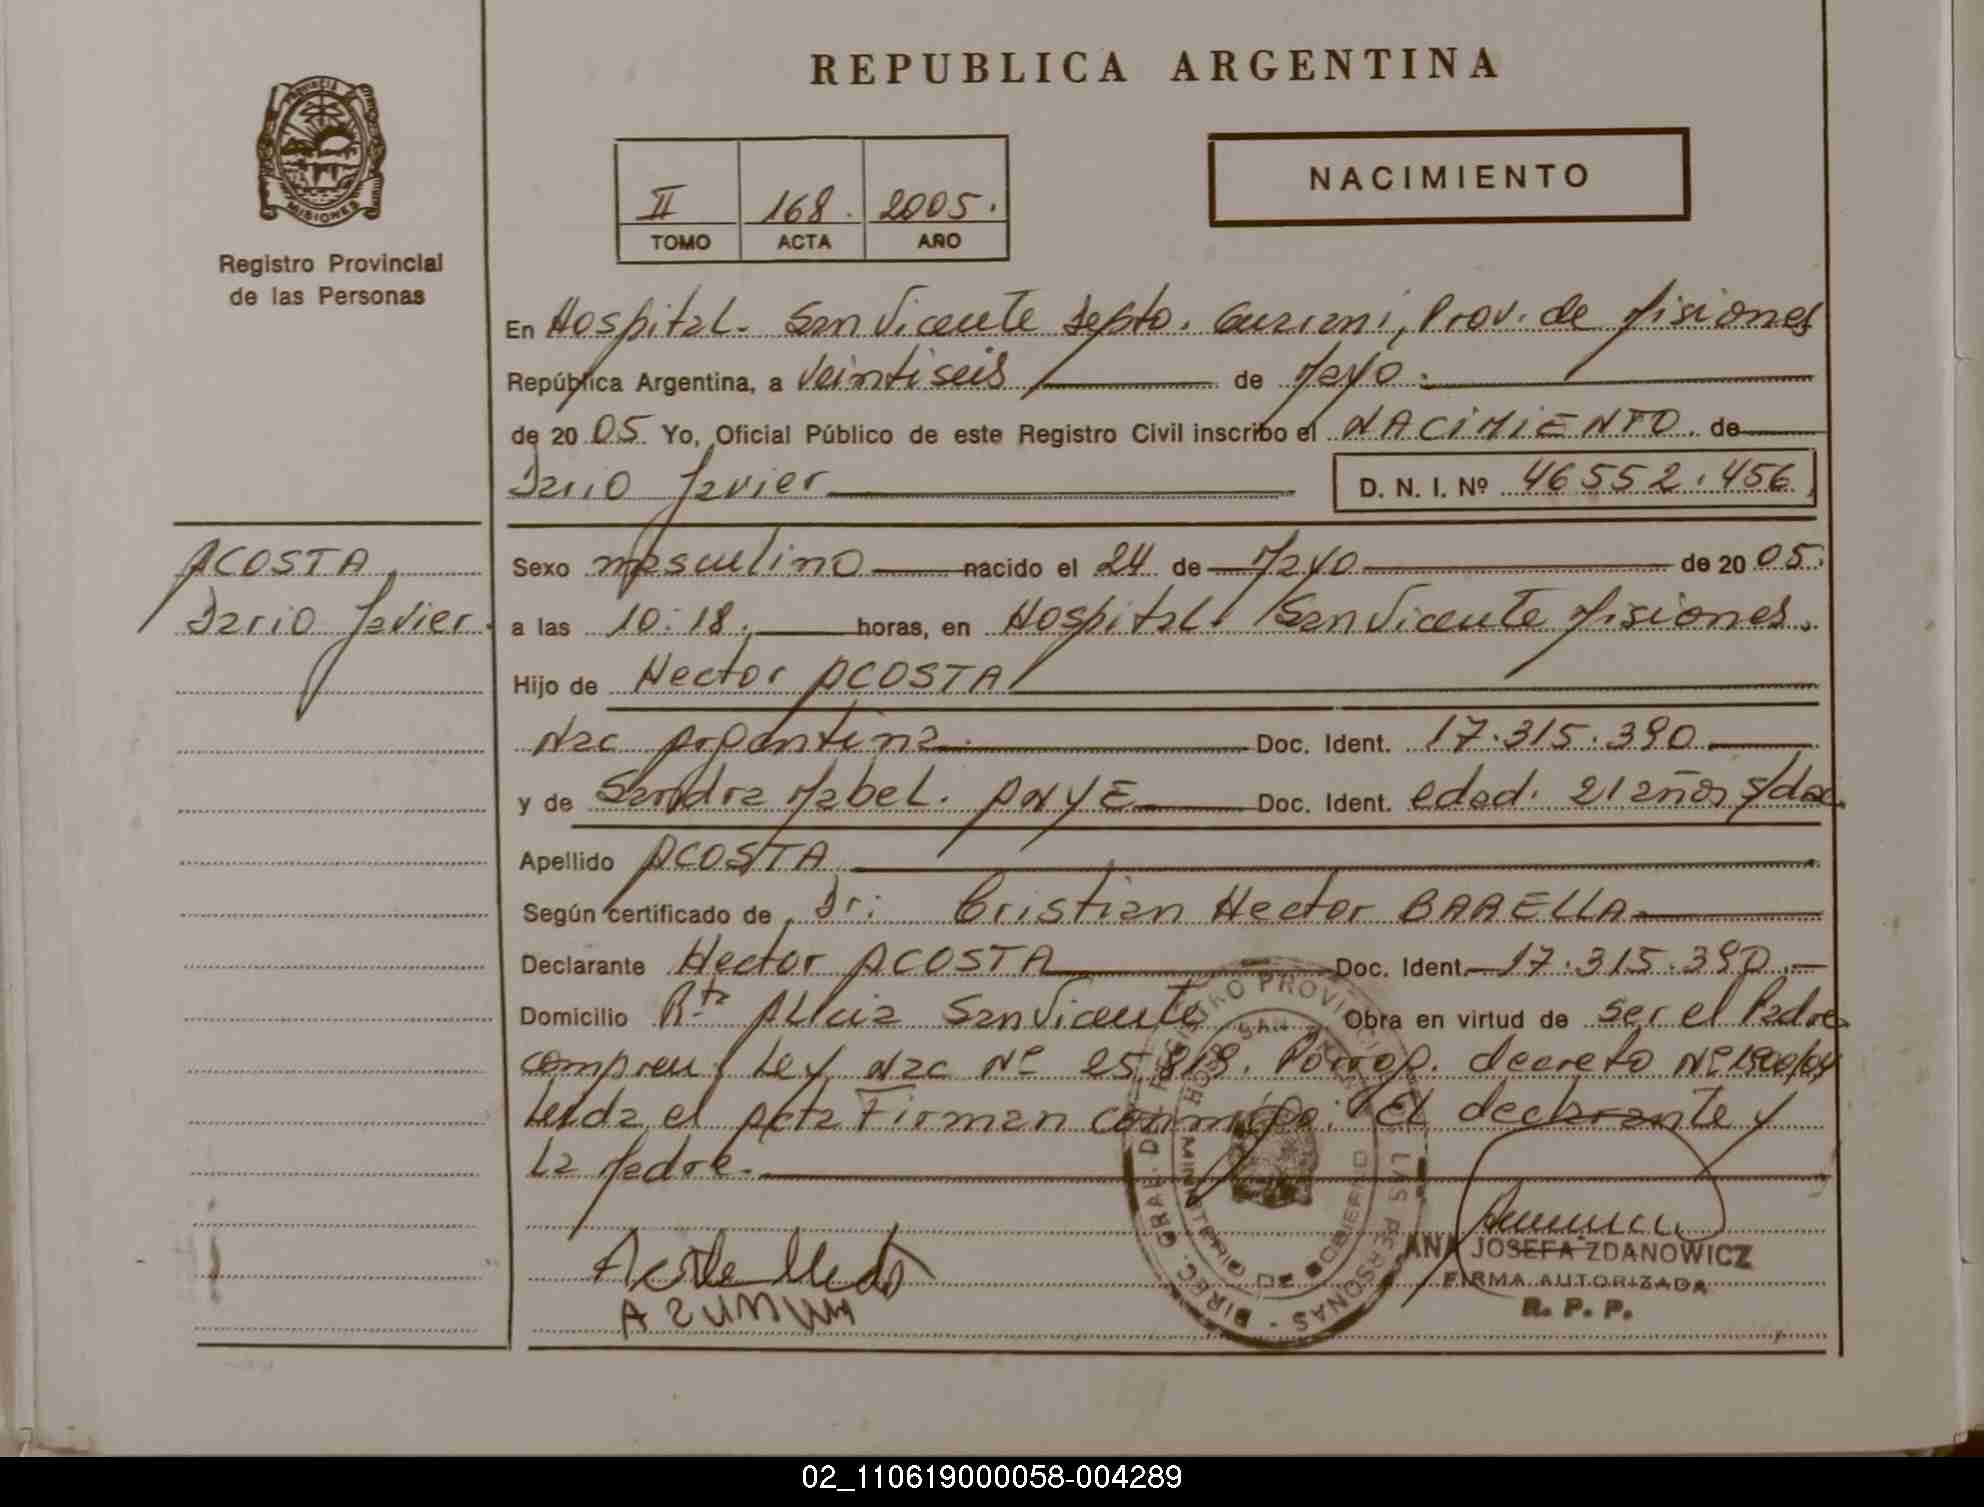 REPUBLICA ARGENTINA
PROVINCIA DE
MISIONES
Registro Provincial
de las Personas
II 168. 2005.
TOMO ACTA AÑO
NACIMIENTO
En Hospital. San Vicente Depto. Guarani, Prov. de Misiones
República Argentina, a Veintiseis de Mayo.
de 20 05. Yo, Oficial Público de este Registro Civil inscribo el NACIMIENTO. de
Dario Javier D. N. I. Nº 46552.456
ACOSTA
Dario Javier.
Sexo masculino nacido el 24 de Mayo de 20 05.
a las 10:18. horas, en Hospital. San Vicente Misiones.
Hijo de Hector ACOSTA
Nac Argentina. Doc. Ident. 17.315.390
y de Sandra Mabel. ANYE Doc. Ident. edad. 21 años s/doc.
Apellido ACOSTA
Según certificado de Dr: Cristian Hector BARELLA
Declarante Hector ACOSTA Doc. Ident. 17.315.390.
Domicilio Rta Alicia San Vicente Obra en virtud de ser el Padre
Ley Nac Nº 25.819. decreto Nº 1900/04
Leida el Acta Firman conmigo: El declarante y
La Madre.
DIREC. GRAL. DEL REGISTRO PROVINCIAL DE LAS PERSONAS
MINISTERIO DE GOBIERNO
ANA JOSEFA ZDANOWICZ
FIRMA AUTORIZADA
R. P. P.
02_110619000058-004289